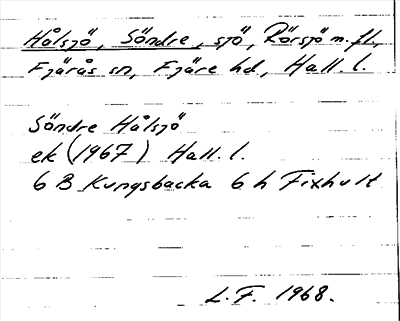 Hålsjö, Söndre, sjö, Rörsjö m. fl.,
Fjärås sn, Fjäre hd, Hall. l.
Söndre Hålsjö
ek (1967) Hall. l.
6 B Kungsbacka 6 h Fixhult
L.F. 1968.